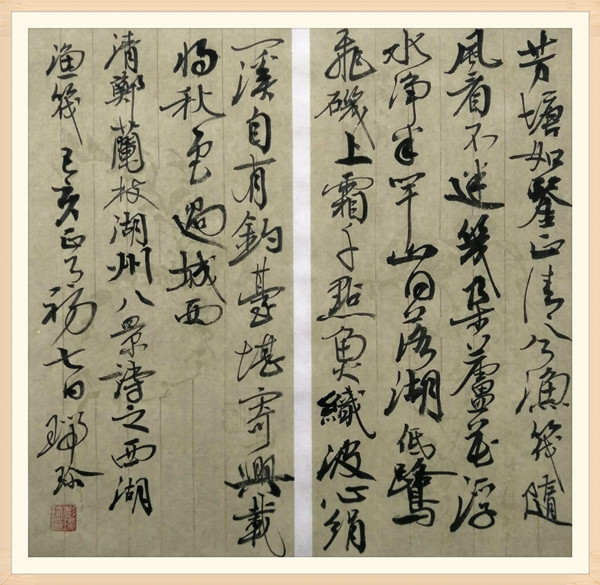 芳塘如鑒正清兮漁筏隨
風看不迷幾朵蘆花浮
水淨半竿山日落湖低鷺
飛磯上霜千點魚織波心絹
一溪自有釣臺堪寄興載
將秋雲過城西
清鄭蘭枝湖州八景詩之西湖
漁筏 己亥正月初七日